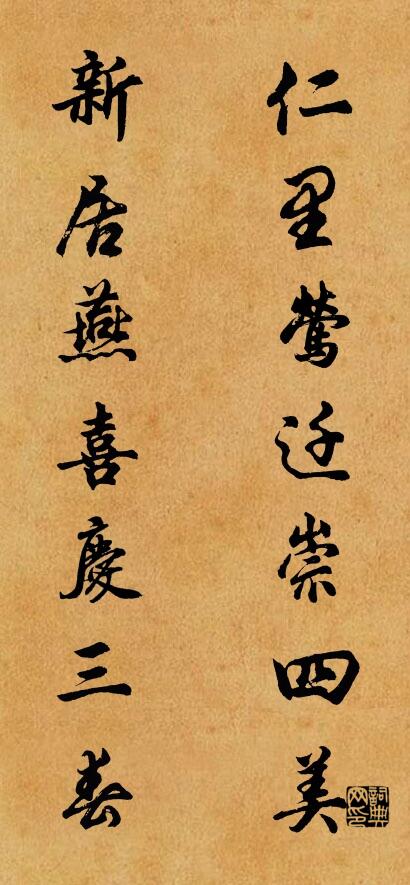 仁里鶯迁崇四美
新居燕喜慶三春
詞典网印